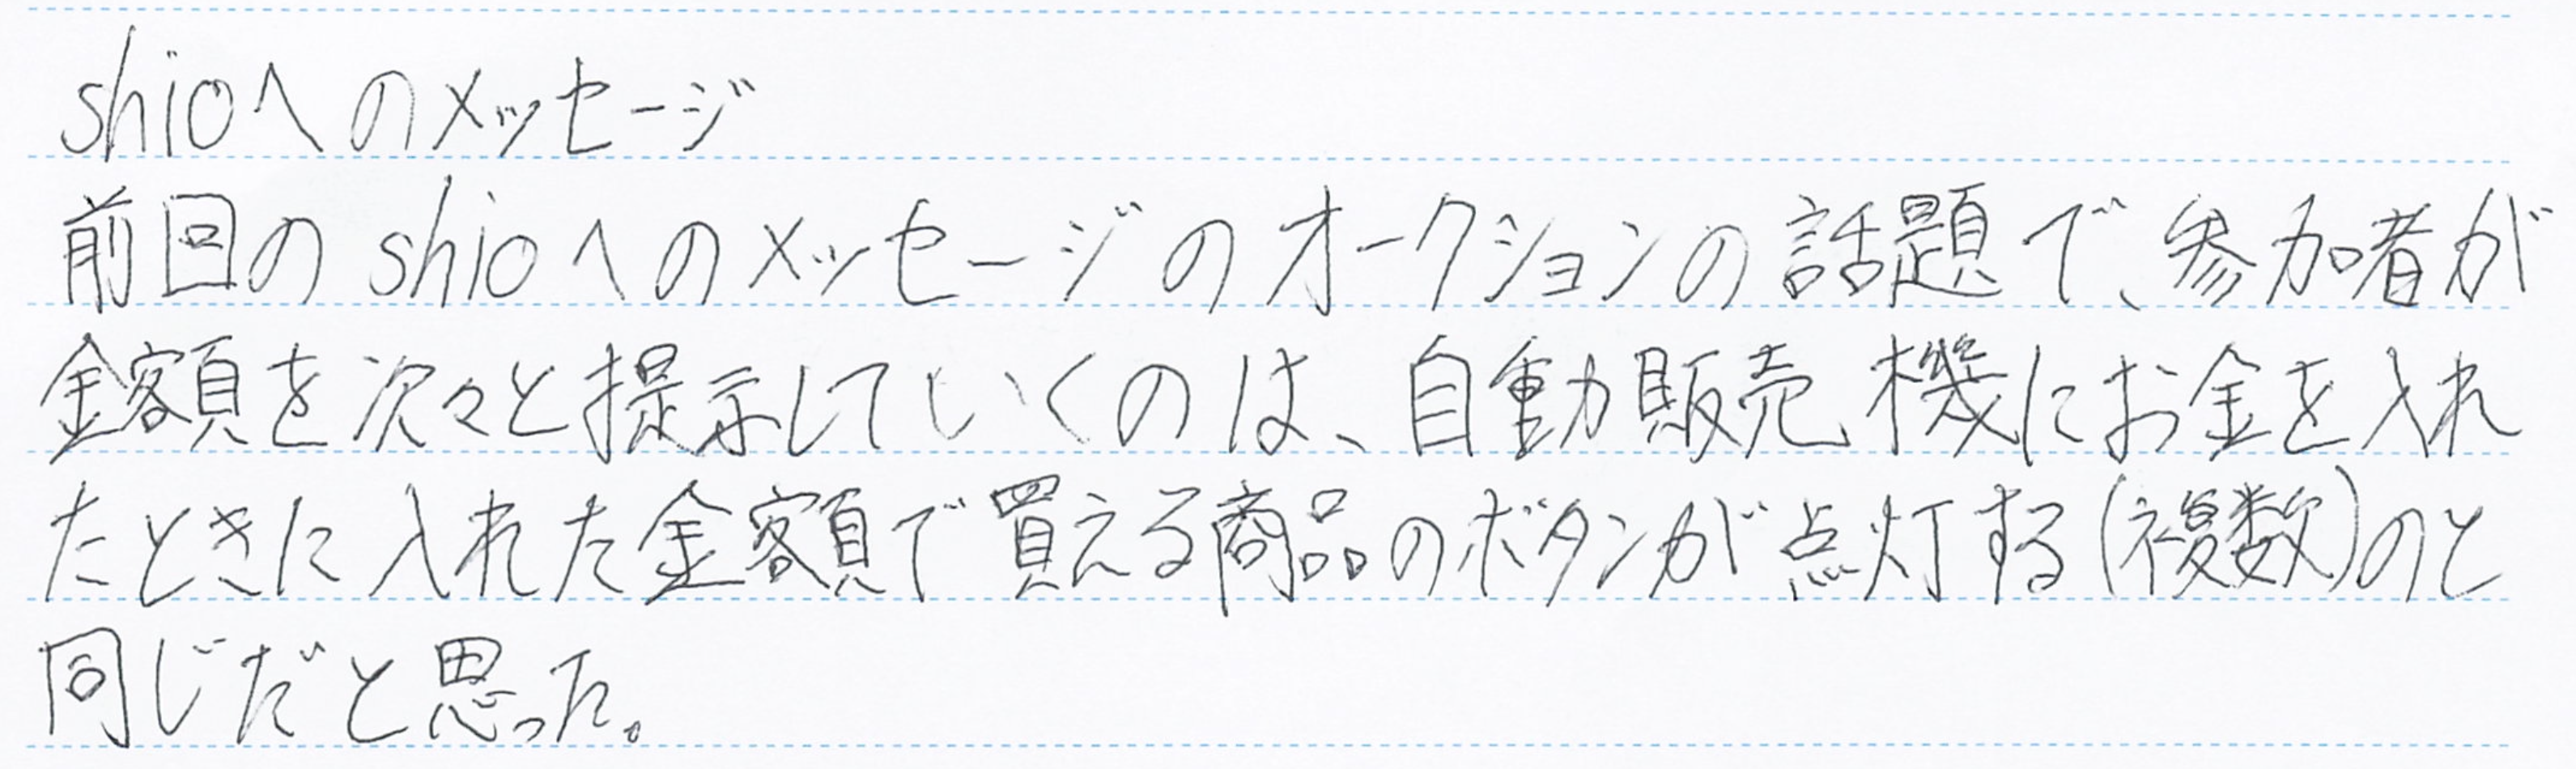 shioへのメッセージ
前回のshioへのメッセージのオークションの話題で、参加者が
金額を次々と提示していくのは、自動販売機にお金を入れ
たときに入れた金額で買える商品のボタンが点灯する(複数)のと
同じだと思った。